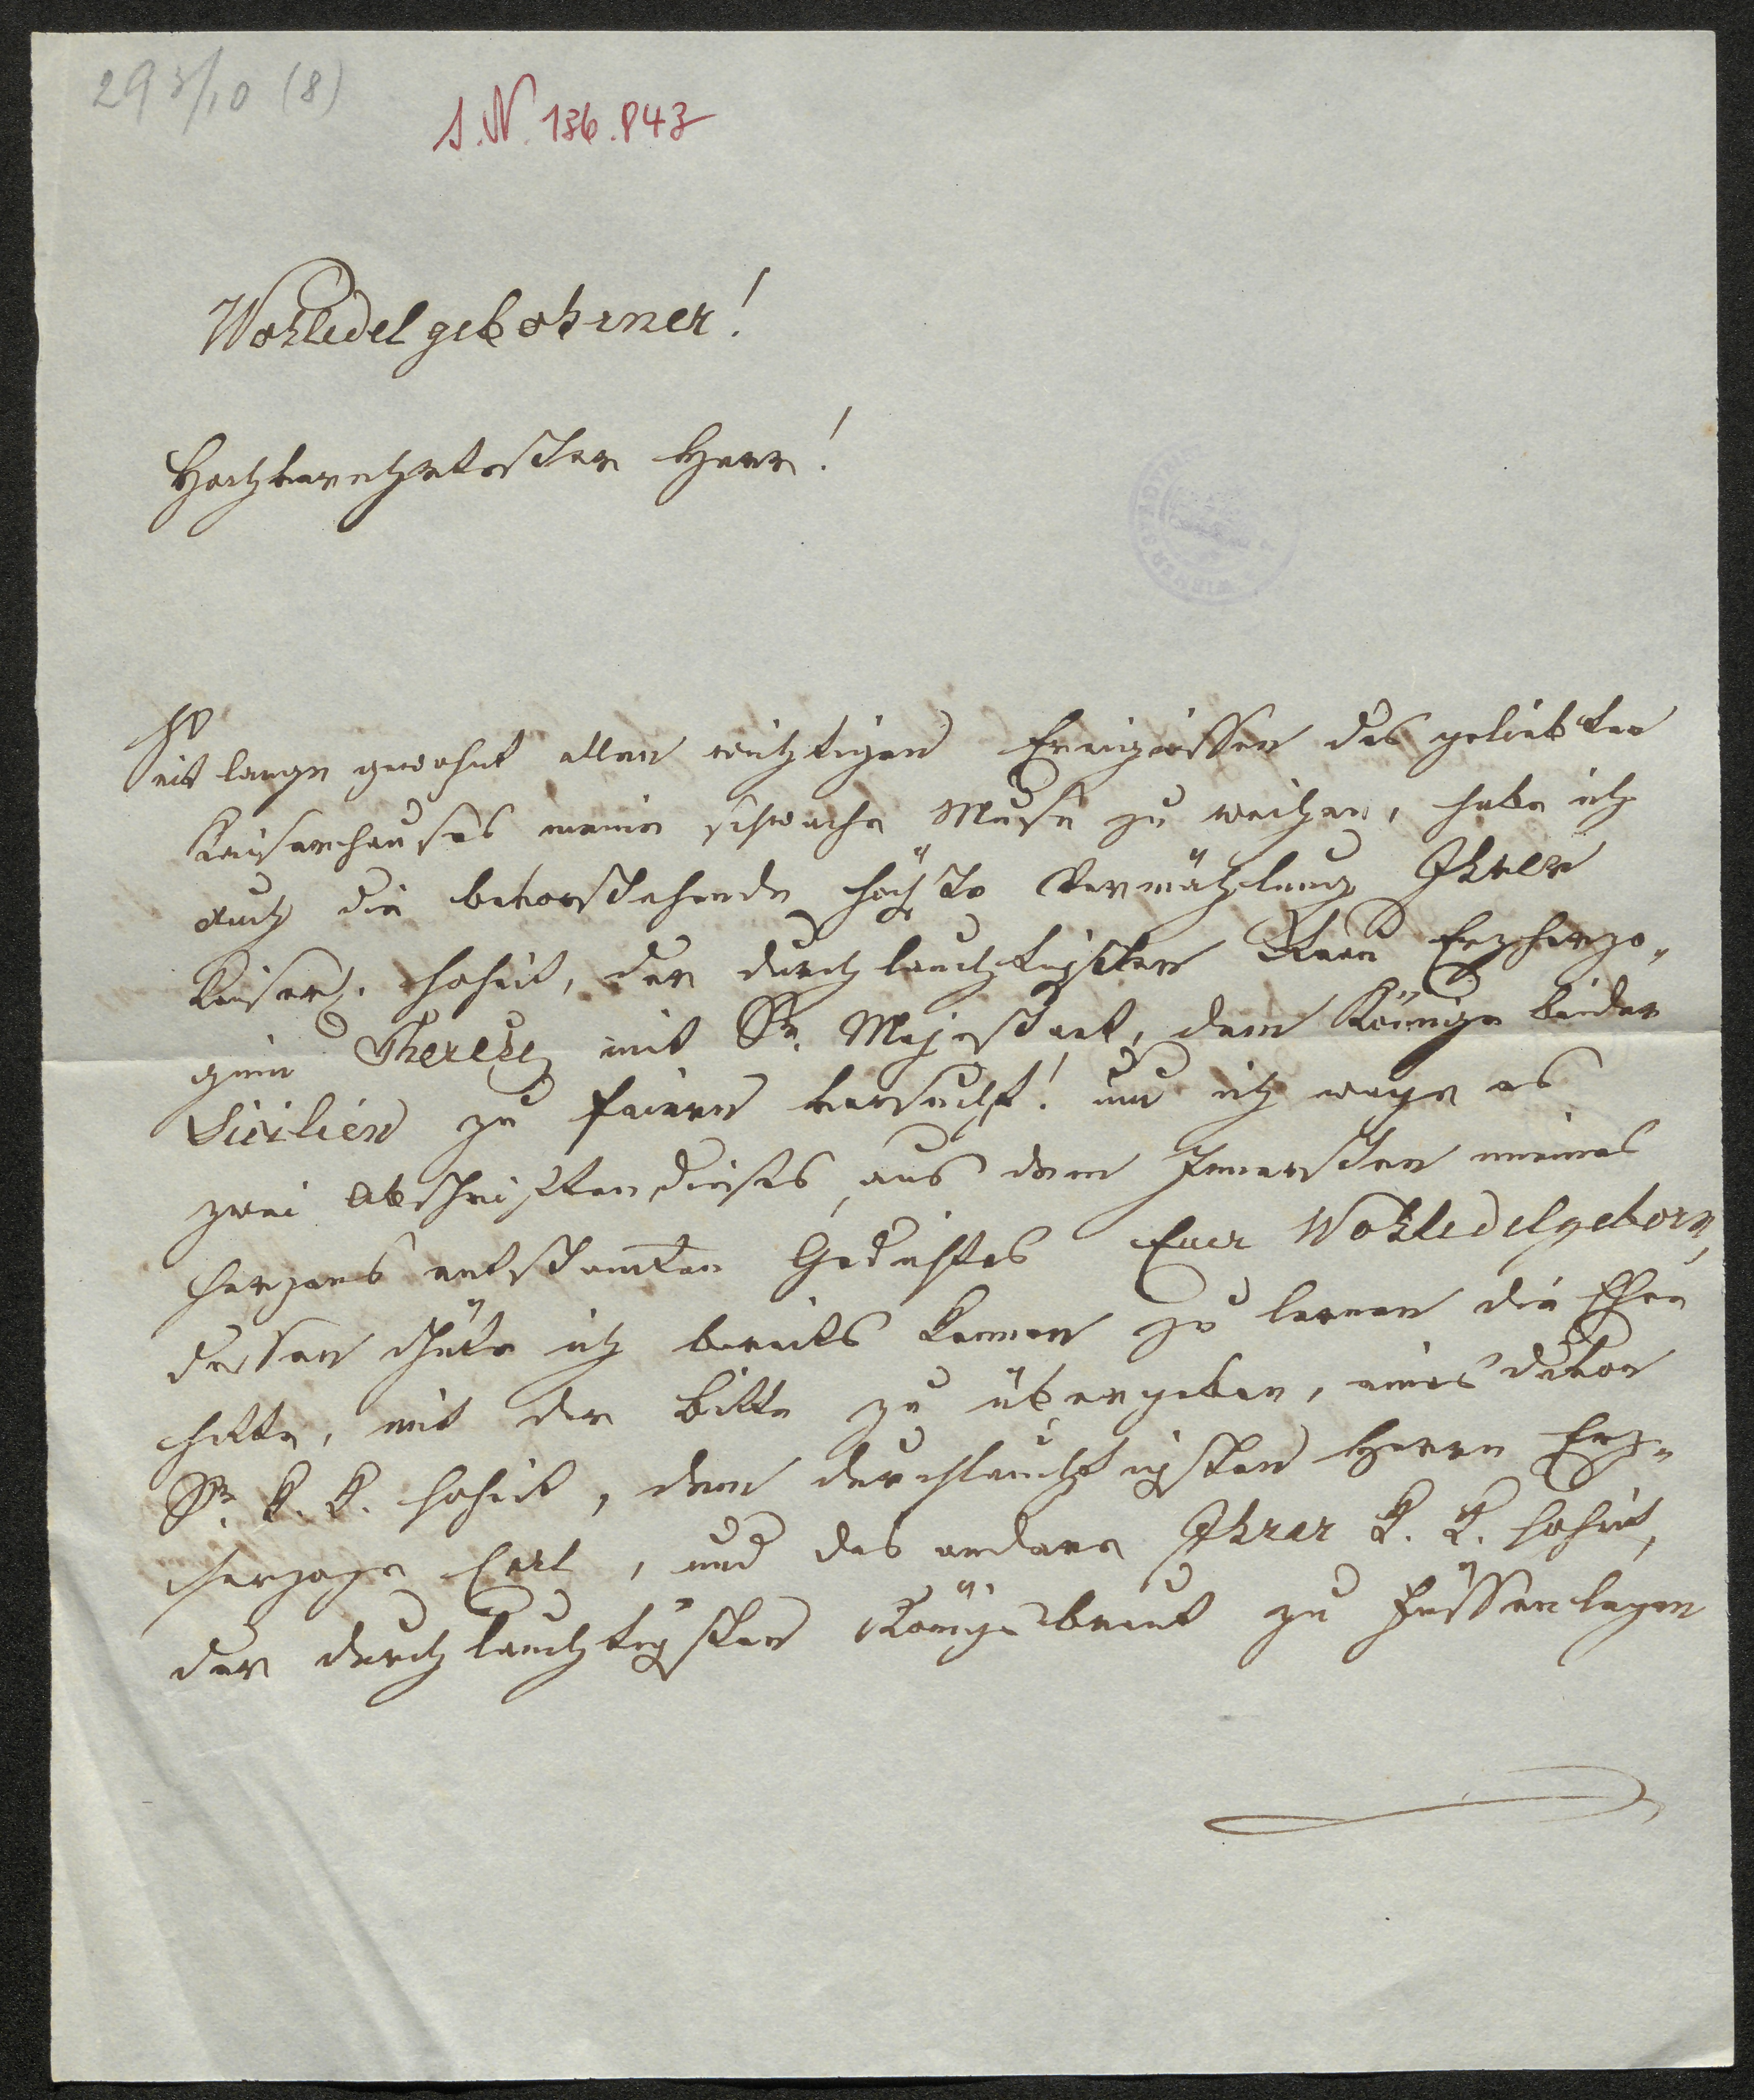 293/10 (8)
I.N. 136.843
Wohledelgebohrner!
Hochverehrtester Herr!
Seit lange gewohnt allen wichtigen Ereignissen des geliebten
Kaiserhauses meine schwache Muse zu weihen, habe ich
auch die bevorstehende höchste Vermählung Ihrer
Kaiserl. Hoheit, der durchlauchtigsten Frau Erzherzo„
ginn Therese mit Sr. Majestaet, dem Könige beider
Sicilien zu feiern versucht! und ich wage es
zwei Abschriften dieses, aus dem Innersten meines
Herzens entstamten Gedichtes Euer Wohledelgeborn,
dessen Güte ich bereits kennen zu lernen die Ehre
hatte, mit der Bitte zu übergeben, eines davon
Sr. K. K. Hoheit, dem durchlauchtigsten Herrn Erz„
herzoge Carl, und das andere Ihrer K. K. Hoheit,
der durchlauchtigsten Königsbraut zu Füssen legen